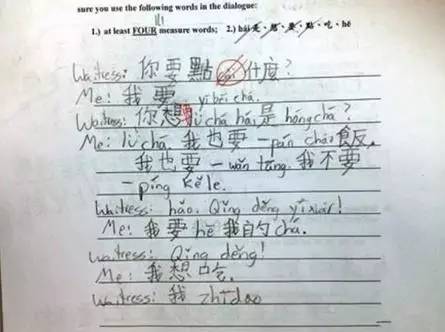 sure you use the following words in the dialogue:
1.) at least FOUR measure words; 2.) hái是、想、要、點、吃、hē
Waitress: 你要點什麼?
Me: 我要 yì bēi chá.
Waitress: 你想要lǜ chá hái是 hóngchá?
Me: lǜ chá. 我也要一pán chǎo飯。
我也要一wǎn tāng. 我不要
一píng kělè.
Waitress: hǎo. Qǐng děng yíxiàr!
Me: 我要 hē 我自的 chá.
Waitress: Qǐng děng!
Me: 我想吃.
Waitress: 我 zhīdao